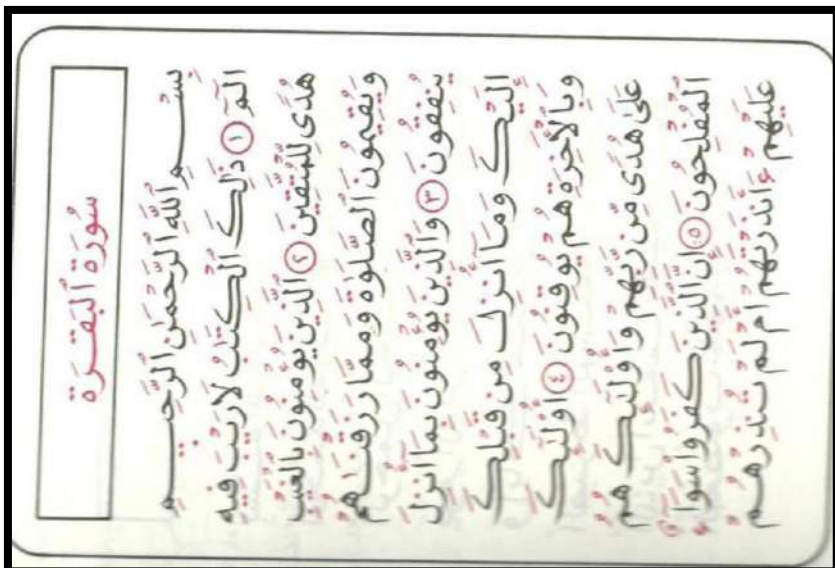 سُورَةُ ٱلْبَقَرَةِ
بِسْمِ ٱللَّهِ ٱلرَّحْمَٰنِ ٱلرَّحِيمِ
الٓمٓ ١ ذَٰلِكَ ٱلْكِتَٰبُ لَا رَيْبَ فِيهِ
هُدًى لِّلْمُتَّقِينَ ٢ ٱلَّذِينَ يُؤْمِنُونَ بِٱلْغَيْبِ
وَيُقِيمُونَ ٱلصَّلَوٰةَ وَمِمَّا رَزَقْنَٰهُمْ
يُنفِقُونَ ٣ وَٱلَّذِينَ يُؤْمِنُونَ بِمَآ أُنزِلَ
إِلَيْكَ وَمَآ أُنزِلَ مِن قَبْلِكَ
وَبِٱلْأَخِرَةِ هُمْ يُوقِنُونَ ٤ أُو۟لَٰٓئِكَ
عَلَىٰ هُدًى مِّن رَّبِّهِمْ وَأُو۟لَٰٓئِكَ هُمُ
ٱلْمُفْلِحُونَ ٥ إِنَّ ٱلَّذِينَ كَفَرُوا۟ سَوَآءٌ
عَلَيْهِمْ ءَأَنذَرْتَهُمْ أَمْ لَمْ تُنذِرْهُمْ